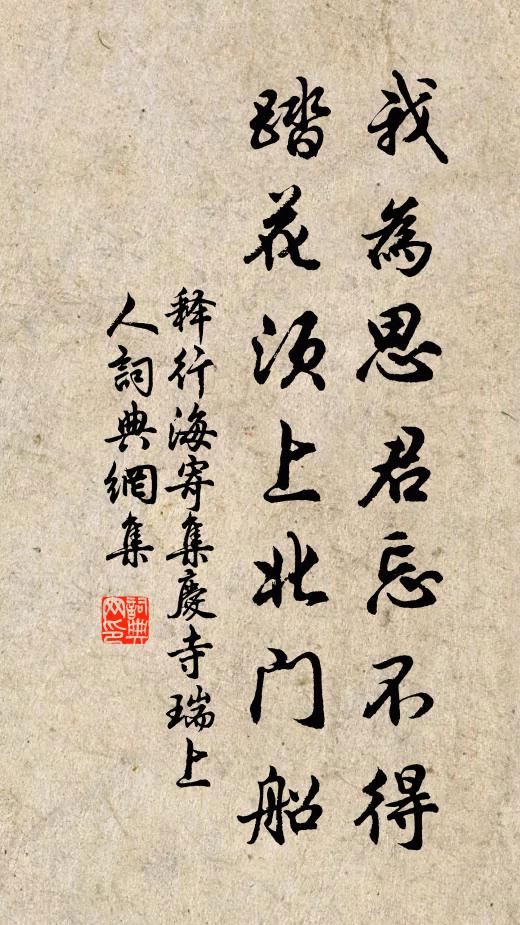 我為思君忘不得
踏花須上北门船
释行海寄集慶寺瑞上
人詞典網集
詞典
网印